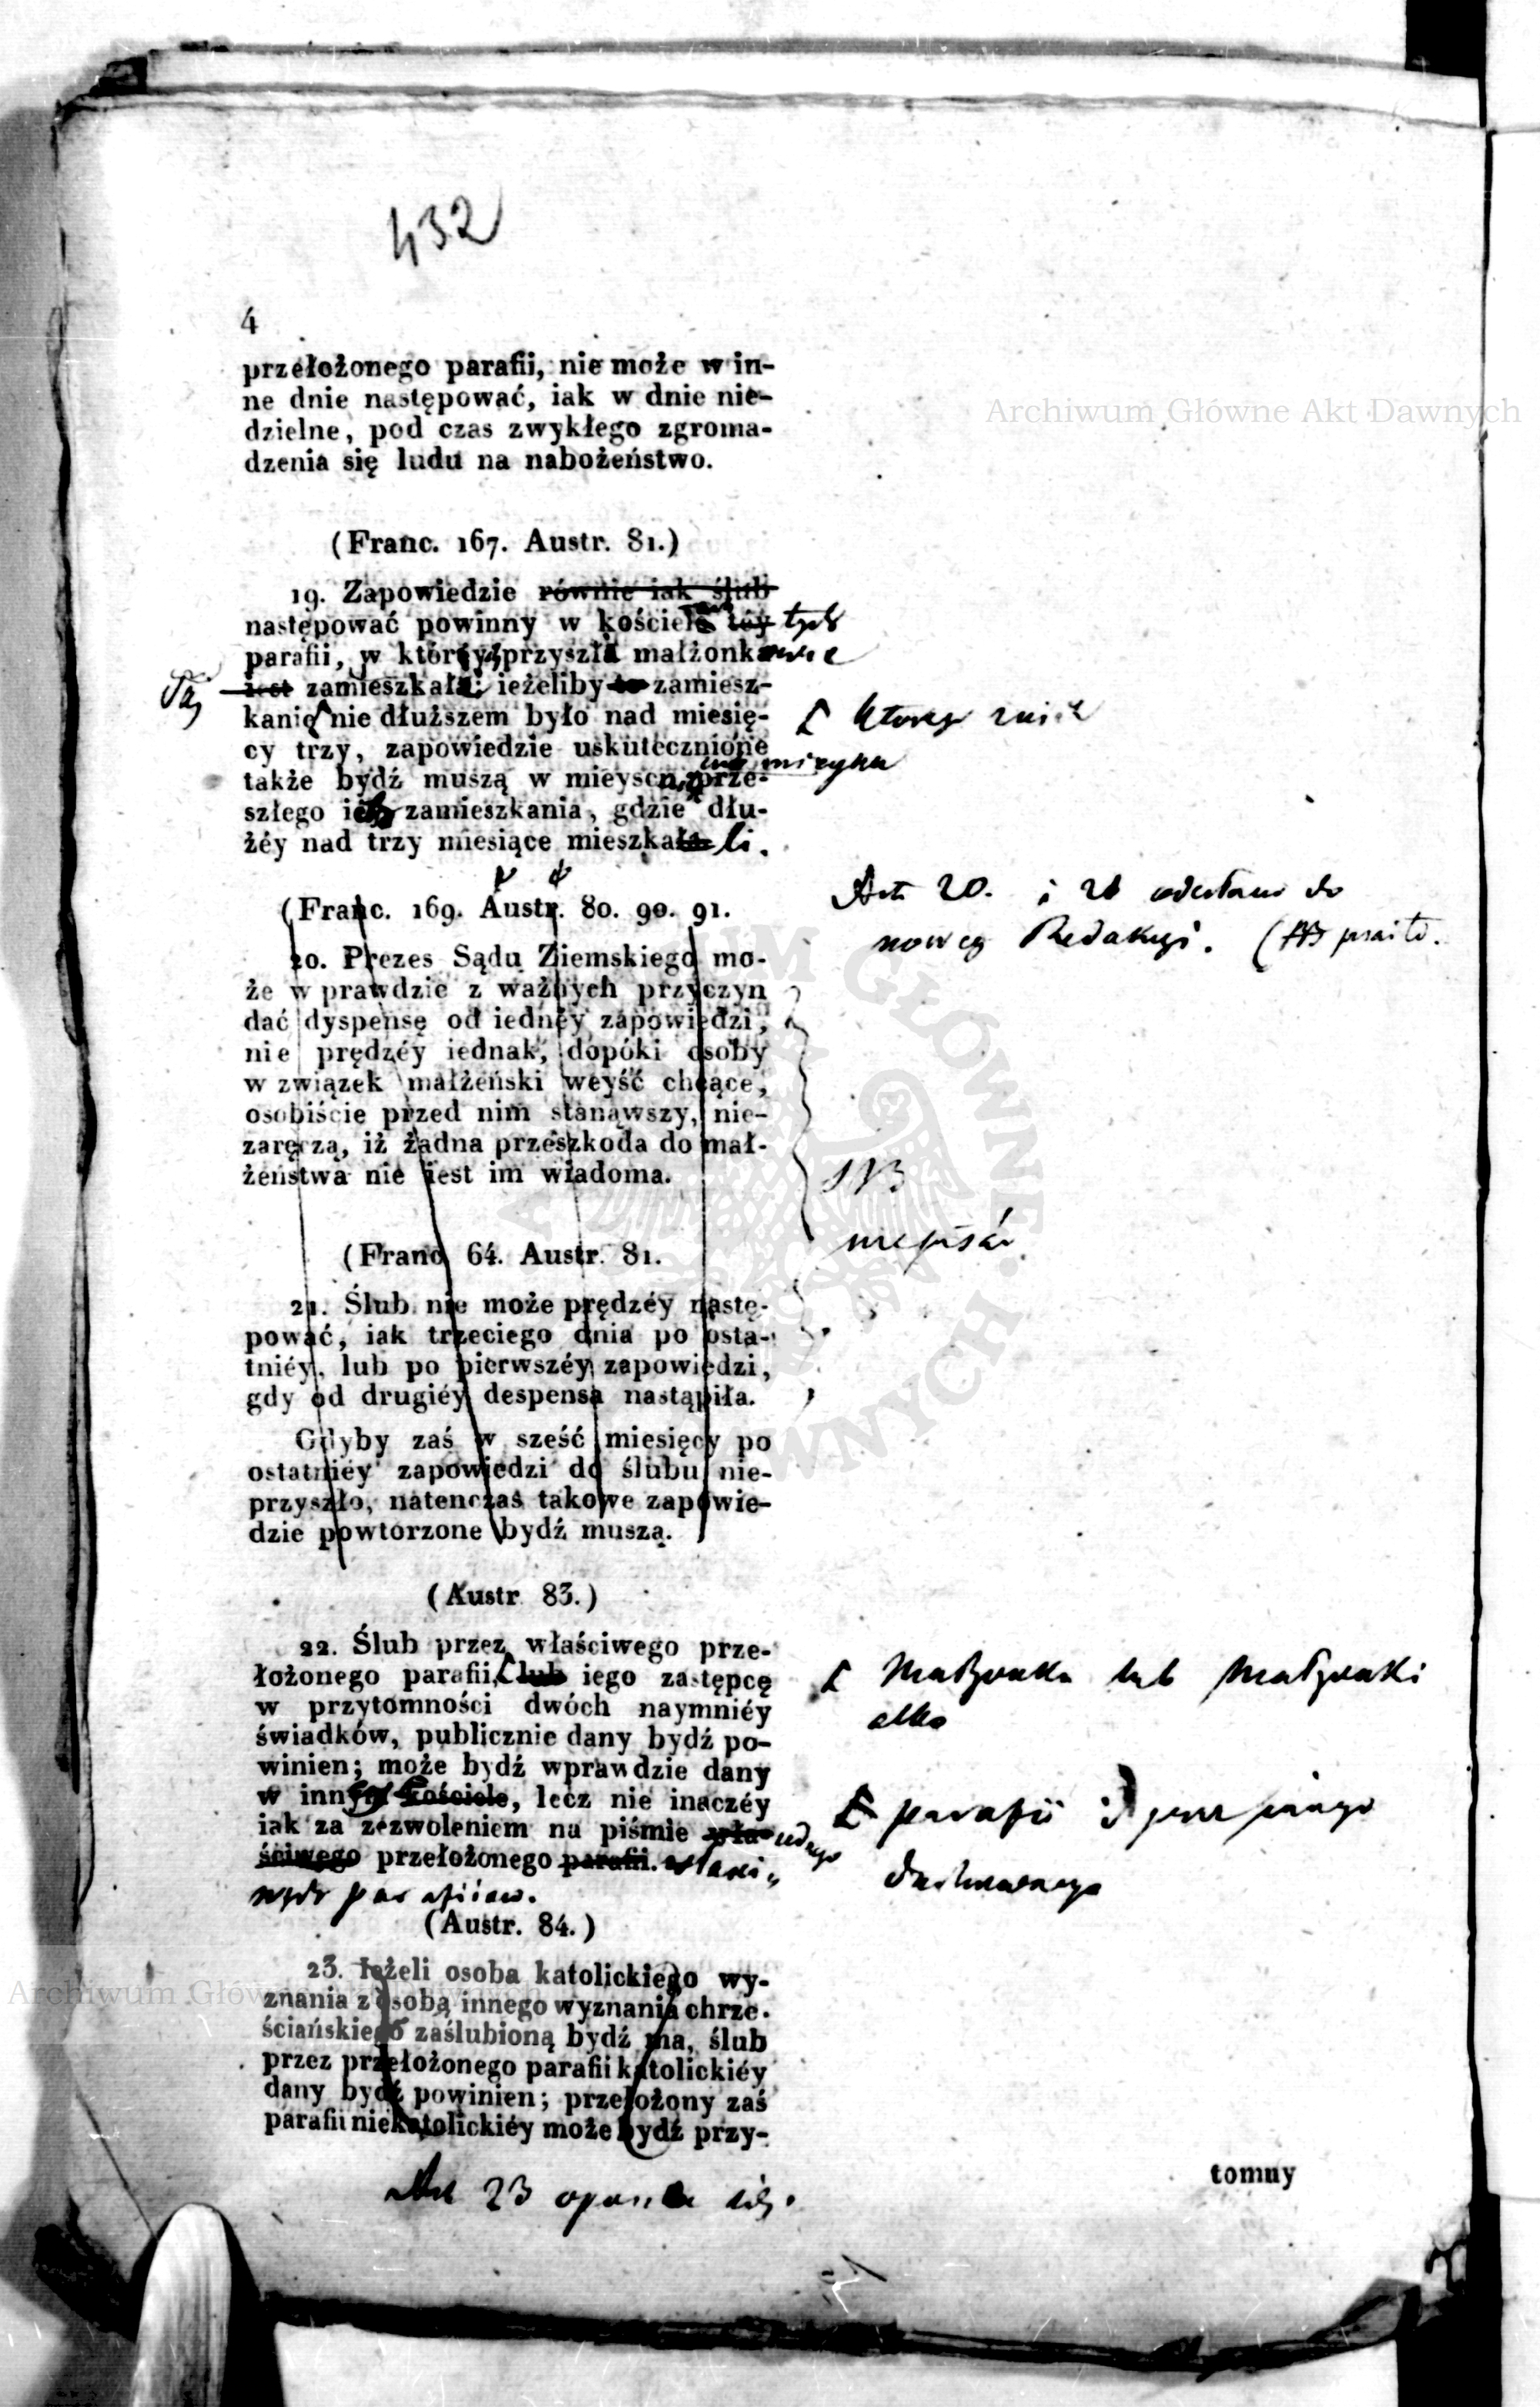 432
4
przełożonego parafii, nie może w in-
ne dnie następować, iak w dnie nie-
dzielne, pod czas zwykłego zgroma-
dzenia się ludu na nabożeństwo.
(Franc. 167. Austr. 81.)
19. Zapowiedzie równie iak ślub
następować powinny w kościele téy tych
parafii, w któréy przyszła małżonkowie
iest zamieszkała; ieżeliby to zamiesz-
kanie nie dłuższem było nad miesię-
cy trzy, zapowiedzie uskutecznione
także bydź muszą w mieyscu prze-
szłego ich zamieszkania, gdzie dłu-
żéy nad trzy miesiące mieszkali.
Art 20. i 21 odesłane do
nowey Redakcyi.
(Franc. 169. Austr. 80. 90. 91.
20. Prezes Sądu Ziemskiego mo-
że wprawdzie z ważnych przyczyn
dać dyspensę od iednéy zapowiedzi,
nie prędzéy iednak, dopóki osoby
w związek małżeński weyść chcące,
osobiście przed nim stanąwszy, nie-
zaręczą, iż żadna przeszkoda do mał-
żeństwa nie iest im wiadoma.
NB
nie pisać
(Franc 64. Austr. 81.
21. Ślub nie może prędzéy nastę-
pować, iak trzeciego dnia po osta-
tniéy, lub po pierwszéy zapowiedzi,
gdy od drugiéy despensa nastąpiła.
Gdyby zaś w sześć miesięcy po
ostatniéy zapowiedzi do ślubu nie-
przyszło, natenczas takowe zapowie-
dzie powtorzone bydź muszą.
(Austr 83.)
22. Ślub przez właściwego prze-
łożonego parafii, lub iego zastępcę
w przytomności dwóch naymniéy
świadków, publicznie dany bydź po-
winien; może bydź wprawdzie dany
w innym kościele, lecz nie inaczéy
iak za zezwoleniem na piśmie wła-
ściwego przełożonego parafii.
Małżonka lub Małżonki
albo
parafii i przez innego
duchownego
(Austr. 84.)
23. Ieżeli osoba katolickiego wy-
znania z osobą innego wyznania chrze-
ściańskiego zaślubioną bydź ma, ślub
przez przełożonego parafii katolickiéy
dany bydź powinien; przełożony zaś
parafii niekatolickiéy może bydź przy-
tomny
Art 23 opuszcza się.
Archiwum Główne Akt Dawnych
Archiwum Główne Akt Dawnych